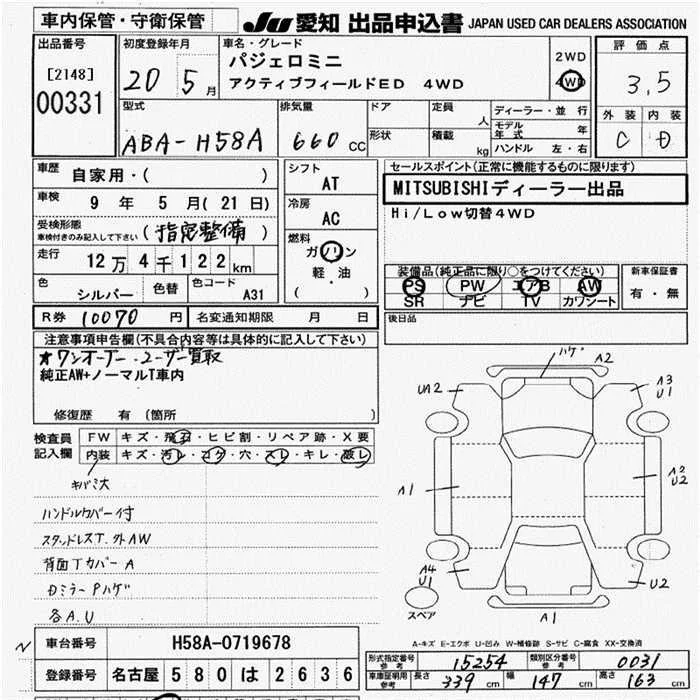 車内保管・守衛保管
JU 愛知 出品申込書 JAPAN USED CAR DEALERS ASSOCIATION
出品番号
[2148]
00331
初度登録年月
20 5 月
車名・グレード
パジェロミニ
アクティブフィールドED 4WD
2WD
4WD
評価点
3.5
外装 内装
C D
型式
ABA-H58A
排気量
660 CC
ドア
形状
定員
人
積載
kg
ディーラー・並行
モデル年式 年
ハンドル 左・右
車歴
自家用・( )
車検
9 年 5 月(21日)
受検形態
車検付きのみ記入して下さい
(指定整備)
走行
12万4千122km
色
シルバー
色替
色コード
A31
シフト
AT
冷房
AC
燃料
ガソリン
軽・油
( )
セールスポイント(正常に機能するものに限ります)
MITSUBISHIディーラー出品
Hi/Low切替4WD
装備品(純正品に限り○をつけてください)
PS PW エアB AW
SR ナビ TV カワシート
新車保証書
有・無
R券 10070 円
名変通知期限 月 日
後日品
注意事項申告欄(不具合内容等は具体的に記入して下さい)
★ワンオーナー・ユーザー買取
純正AW+ノーマルT車内
修復歴 有(箇所 )
検査員記入欄
FW キズ・飛石・ヒビ割・リペア跡・X要
内装 キズ・汚レ・コゲ・穴・スレ・キレ・破レ
キバミ大
ハンドルカバー付
スタッドレスT.外AW
背面TカバーA
Dミラー Pハゲ
各A.U
ハゲ
A2
UA2
A3
U1
A1
A2
U2
A4
U1
U2
スペア
A1
A-キズ E-エクボ U-凹み W-補修跡 S-サビ C-腐食 XX-交換済
車台番号 H58A-0719678
登録番号 名古屋 580 は 2636
型式指定番号 参考 15254
類別区分番号 参考 0031
車庫証明用 参考 長さ 339 cm 幅 147 cm 高さ 163 cm